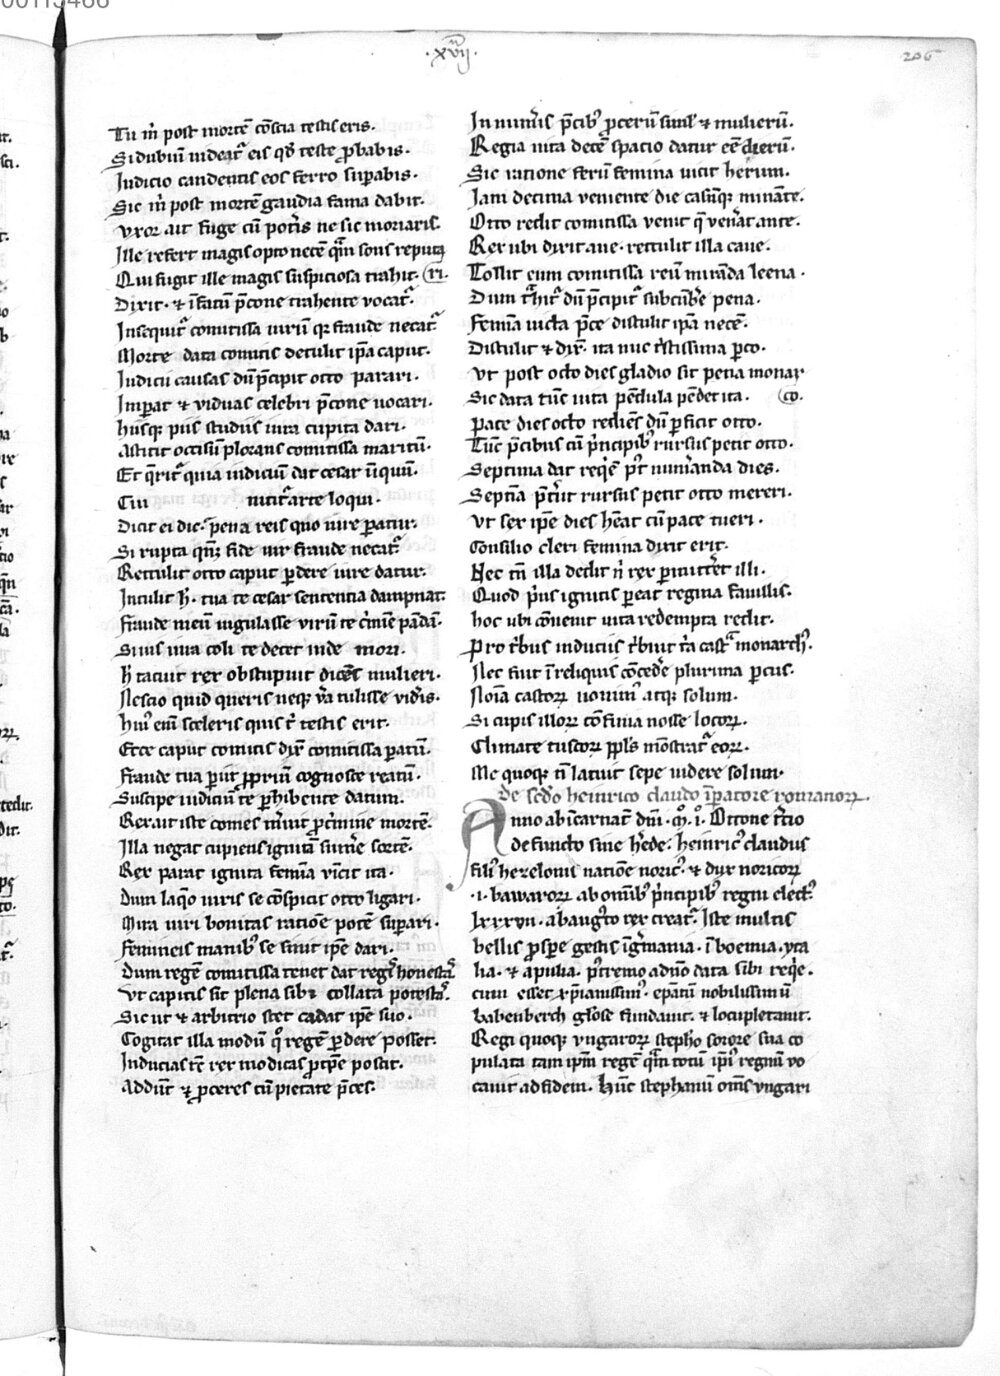 ·xvij·
206
Tu m̄ post mortē cōscia testis eris.
Si dubiuƺ videat᷑ eis qd̄ teste ꝓbabis.
Iudicio candentis eos ferro suꝑabis.
Sic m̄ post mortē gaudia fama dabit.
Vxor ait fuge cū pot̄is ne sic moriaris.
Ille refert magis opto necē qͣm sons reputa
Qui fugit ille magis suspiciosa trahit. (ri.
Dixit. et ī fatū p̄cone trahente vocat᷑.
Insequit᷑ comitissa viriū qꝫ fraude necat᷑
Morte data comitis detulit ip̄a caput.
Iudicii causas dū p̄cipit otto parari.
Imꝑat et viduas celebri p̄cone uocari.
Hiisqꝫ piis studiis iura cupita dari.
Astitit occisū plorans comitissa maritū.
Et q̄rit᷑ quia iudiciū dat cesar iniquū.
Cui nitit᷑ arte loqui.
Dicit ei dic. pena reis quo iure paratur.
Si rupta qm̄ fide uir fraude necat᷑.
Rettulit otto caput ꝑdere iure datur.
Intulit h̄. tua te cesar sententia dampnat.
Fraude meū iugulasse virū te c̄mīe pādā.
Si uis iura coli te decet inde mori.
H̄ tacuit rex obstupuit dicēs mulieri.
Nescio quid queris neqꝫ v̄a tulisse vid̄is.
Hui᷒ em̄ sceleris quis t̄ testis erit.
Ecce caput comitis dix̄ comitissa paratū.
Fraude tua periit ꝓpriū cognosce reatū.
Suscipe iudiciū te ꝑhibente datum.
Rex ait iste comes m̄uit ꝓ c̄mine mortē.
Illa negat cupiens ignitū sum̄e sortē.
Rex parat ignita femīa vīcit ita.
Dum laq̄o iuris se cōspicit otto ligari.
Mira viri bonitas ratiōe potē suꝑari.
Femineis manib᷒ se sinit ip̄e dari.
Dum regē comitissa tenet dat reḡ honestā
Vt capitis sit plena sibi collata potest᷑.
Sic ut et arbitrio stet cadat ip̄e suo.
Cogitat illa modū q̊ regē ꝑdere posset.
Inducias tn̄ rex modicas p̄cipe poscit.
Addūt et ꝓceres cū pietate p̄ces.
In num̄is p̄cib᷒ ꝓcerū simul et mulierū.
Regia uita decē spacio datur eē dierū.
Sic ratione ferū femina uicit herum.
Iam decima veniente die casūqꝫ minante.
Otto redit comitissa venit q̄ ven̄at ante.
Rex ubi dixit aue. rettulit illa caue.
Tollit eum comitissa reū miranda leena.
Dum t̄hit᷑ dū p̄cipit᷑ subcūb̄e pena.
Femīa uicta p̄ce distulit ip̄a necē.
Distulit et dix̄. ita nūc t̄stissima parco.
Vt post octo dies gladio sit pena monar
Sic data tūc iura pēdula pēdet ita. (co.
Pace dies octo rediēs dū ꝑficit otto.
Tūc p̄cibus cū p̄ncipib᷒ rursus petit otto.
Septima dat req̄ē p̄t num̄anda dies.
Septīa p̄t̄iit rursus petit otto mereri.
Vt sex ip̄e dies h̄eat cū pace tueri.
Consilio cleri femina dixit erit.
Nec tn̄ illa dedit n̄ rex ꝑmitt̄et illi.
Quod p̄us ignitis ꝑeat regina fauillis.
Hoc ubi cōuenit uita redempta redit.
Pro t̄bus induciis t̄buit t̄a castͣ monarch᷒.
Nec fuit ī reliquis cōced̄e plurima parcus.
Noīa castorꝝ uouim᷒ atqꝫ solum.
Si cupis illorꝝ cōfinia nosse locorꝝ.
Climate tuscorꝝ ppl̄s mōstrat᷑ eorꝝ.
Me quoqꝫ n̄ latuit sepe uidere solum.
De scd̄o heinrico claudo īperatore romanorꝝ.
Anno ab īcarnat̄ dn̄i. M̊. i̊. Ottone t̄cio
defuncto sine h̄ede. heinric᷒ claudus
fili᷒ hezelonis natiōe noric᷒. et dux noricorꝝ
.i. bawarorꝝ ab om̄ib᷒ p̄ncipib᷒ regni elect᷒
lxxxvii. ab aug᷒to rex creat᷑. Iste multis
bellis ꝓspe gestis ī g̊mania. ī boemia. yta
lia. et apulia. p᷒tremo ad uō data sibi req̄e.
cum esset xp̄ianissim᷒. ep̄atū nobilissimū
babenberch gl̄ose fundauit. et locupletauit.
Regi quoqꝫ vngarorꝝ stepho sorore sua co
pulata tam ip̄m regē qͣm totū ip̄i᷒ regnū vo
cauit ad fidem. Hūc stephanū om̄s vngari